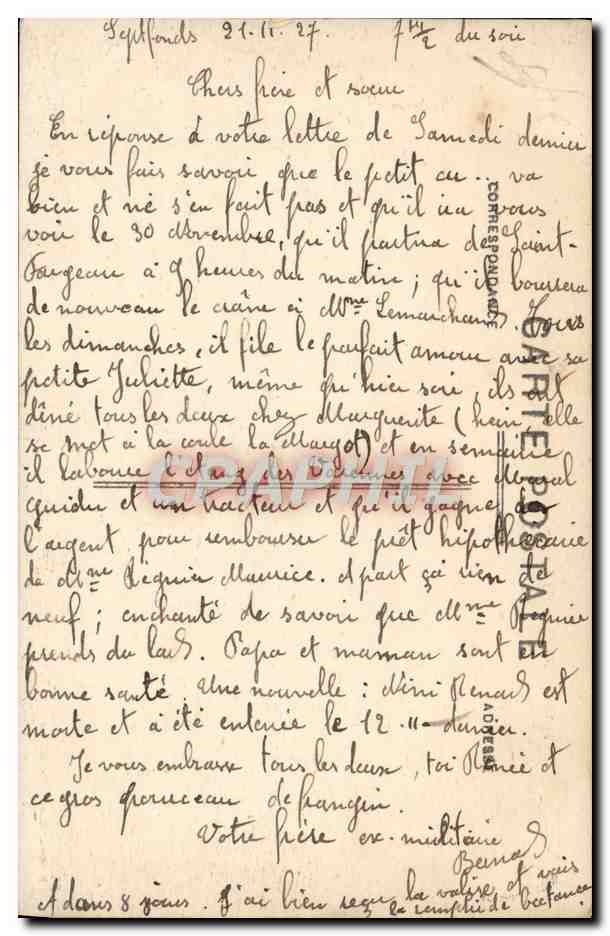 Septfonds 21-11-27. 7 h 1/2 du soir
Chers frère et soeur
En réponse à votre lettre de Samedi dernier
je vous fais savoir que le petit au .. va
bien et ne s'en fait pas et qu'il ira vous
voir le 30 Novembre, qu'il partira de Saint-
Fargeau à 9 heures du matin ; qu'il
de nouveau le crâne à Mme Lemarchand. Tous
les dimanches, il file le parfait amour avec sa
petite Juliette, même qu'hier soir, ils ont
dîné tous les deux chez Marguerite (hein, elle
se met à la coule la Margot) et en semaine
il laboure l'étang des Varennes avec
et un tracteur et qu'il gagne
l'argent pour rembourser le prêt hipothécaire
de Mme Régnier Maurice. A part ça rien de
neuf ; enchanté de savoir que Mme Régnier
prends du lard. Papa et maman sont en
bonne santé. Une nouvelle : Nini Renard est
morte et a été enterrée le 12-11- dernier.
Je vous embrasse tous les deux, toi Renée et
ce gros pourceau de frangin.
Votre frère ex-militaire
et dans 8 jours. J'ai bien reçu la valise et vais
la remplir de bectance.
CORRESPONDANCE
CARTE POSTALE
ADRESSE
CPAPHIL